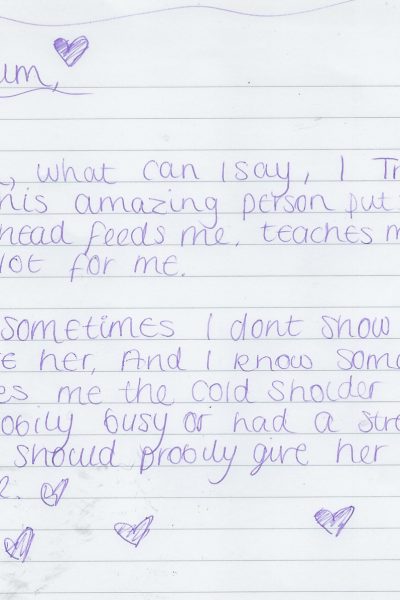 um,
, what can I say, I Tr
his amazing person put
head feeds me, teaches m
lot for me.
sometimes I dont show
e her, And I know som
es me the cold sholder
obily busy or had a str
should probily give her
e.